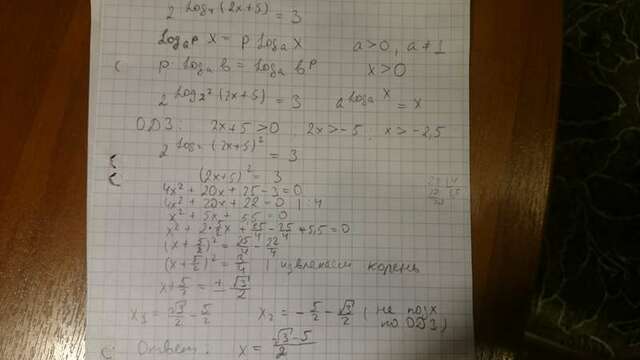 2^(log₄(2x+5)) = 3
log_a^p x = p log_a x a>0, a≠1
p log_a b = log_a b^p x>0
2^(log₂²(2x+5)) = 3 a^(log_a x) = x
ОДЗ: 2x+5>0 2x>-5, x>-2,5
2^(log₂(2x+5)²) = 3
(2x+5)² = 3
4x² + 20x + 25 - 3 = 0
4x² + 20x + 22 = 0 | :4
x² + 5x + 5,5 = 0
x² + 2·5/2x + 25/4 - 25/4 + 5,5 = 0
(x + 5/2)² = 25/4 - 22/4
(x + 5/2)² = 3/4 | извлекаем корень
x + 5/2 = ± √3/2
x₁ = √3/2 - 5/2 x₂ = - 5/2 - √3/2 (не подх
по ОДЗ)
Ответ: x = (√3 - 5)/2